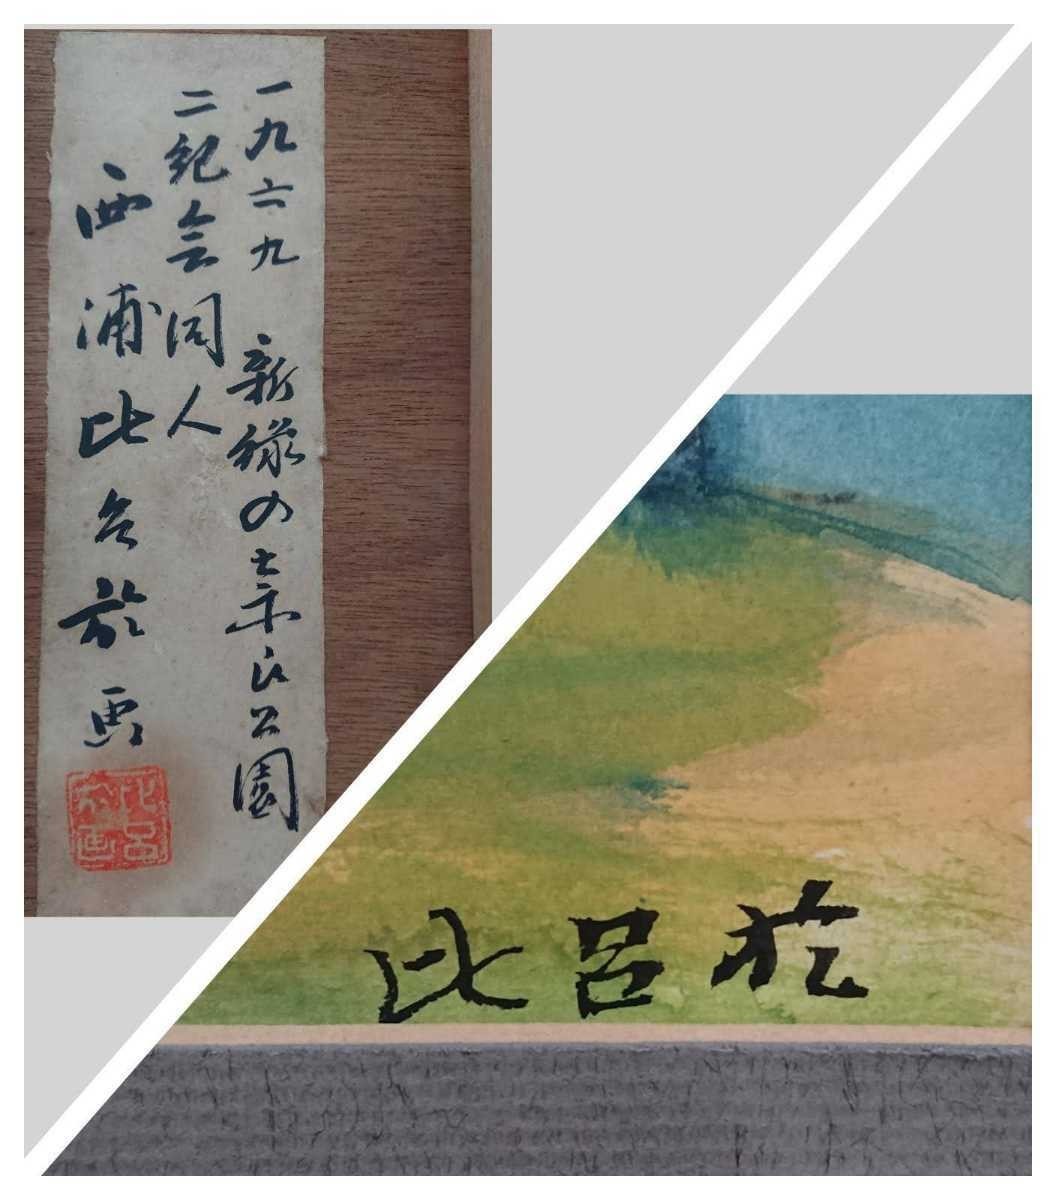 一九六九 新緑の奈良公園
二紀会同人
西浦比呂於画
比呂
於画
比呂於